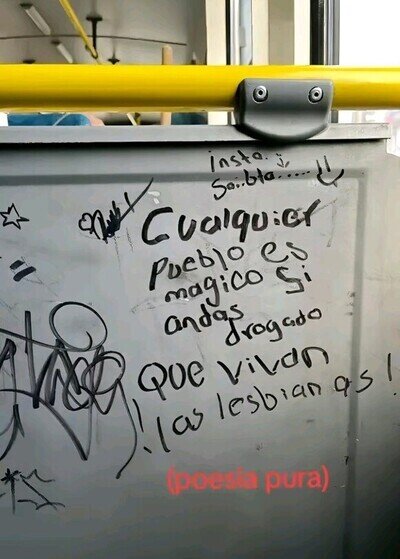 insta
Cualquier
Pueblo es
magico si
andas
drogado
QUE VIVAN
!las lesbianas!
(poesia pura)